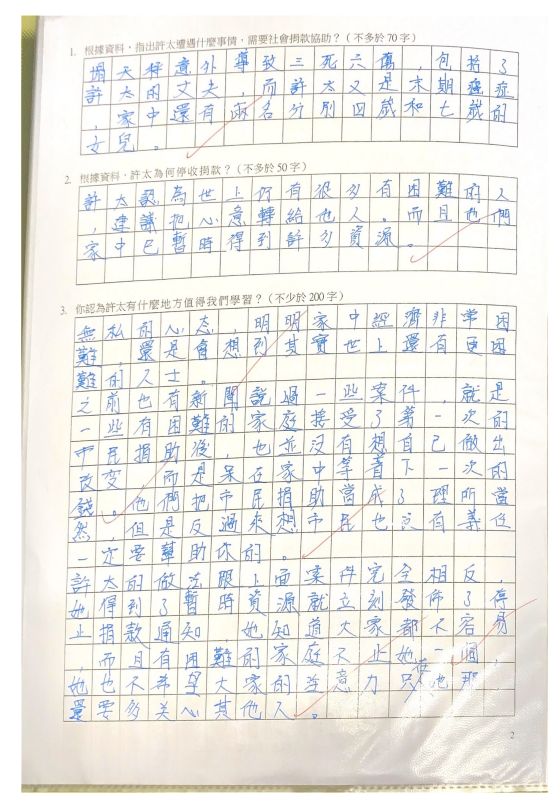 1. 根據資料，指出許太遭遇什麼事情，需要社會捐款協助？（不多於 70 字）
塌天秤意外導致三死六傷，包括了
許太的丈夫，而許太又是末期癌症
，家中還有兩名分別四歲和七歲的
女兒。
2. 根據資料，許太為何停收捐款？（不多於 50 字）
許太認為世上仍有很多有困難的人
，建議把心意轉給他人。而且他們
家中已暫時得到許多資源。
3. 你認為許太有什麼地方值得我們學習？（不少於 200 字）
無私的心态，明明家中經濟非常困
難，還是會想到其實世上還有更困
難的人士。
之前也有新聞說過一些案件，就是
一些有困難的家庭接受了第一次的
市民捐助後，也並沒有想自己做出
改变，而是呆在家中等着下一次的
錢。他們把市民捐助當成了理所當
然，但是反過來想市民也沒有義任
一定要幫助你的。
許太的做法跟上面案件完全相反，
她得到了暫時資源就立刻發佈了停
止捐款通知，她知道大家都不容易
，而且有困難的家庭不止她一個，
她也不希望大家的注意力只在他那
還要多关心其他人。
2